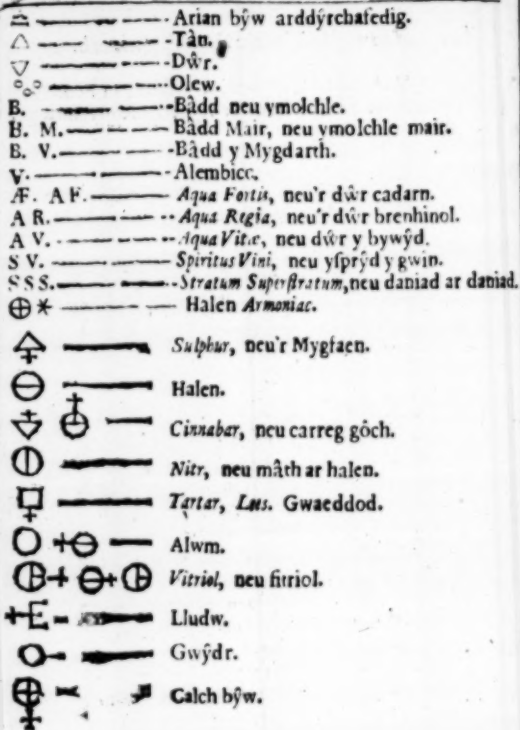 Arian bŷw arddŷrchafedig.
Tàn.
Dŵr.
Olew.
B. Bâdd neu ymolchle.
B. M. Bâdd Mair, neu ymolchle mair.
B. V. Bâdd y Mygdarth.
V. Alembicc.
Æ. A F. Aqua Fortis, neu'r dŵr cadarn.
A R. Aqua Regia, neu'r dŵr brenhinol.
A V. Aqua Vitæ, neu dŵr y bywŷd.
S V. Spiritus Vini, neu yſprŷd y gwin.
S S S. Stratum Superſtratum, neu daniad ar daniad.
Halen Armoniac.
Sulphur, neu'r Mygfaen.
Halen.
Cinnabar, neu carreg gôch.
Nitr, neu mâth ar halen.
Tartar, Lus. Gwaeddod.
Alwm.
Vitriol, neu fitriol.
Lludw.
Gwŷdr.
Calch bŷw.